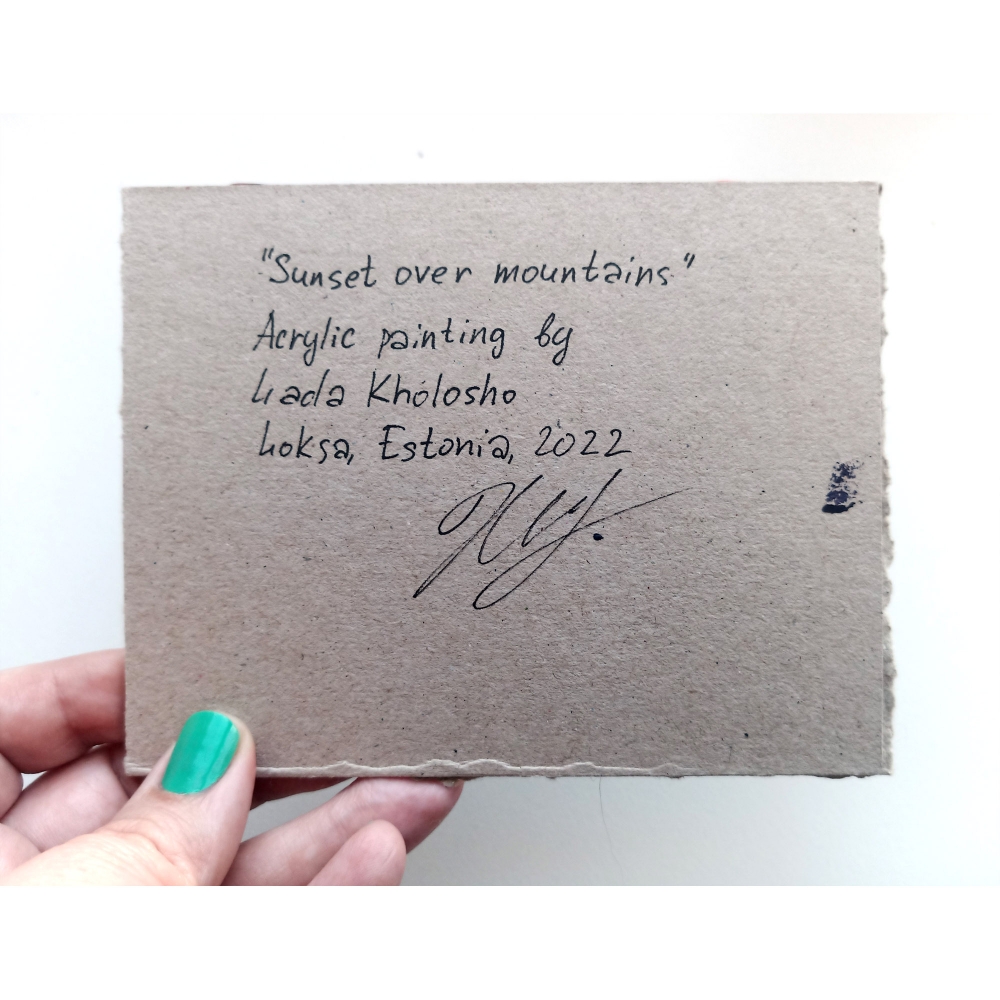 "Sunset over mountains"
Acrylic painting by
Lada Kholosho
Loksa, Estonia, 2022